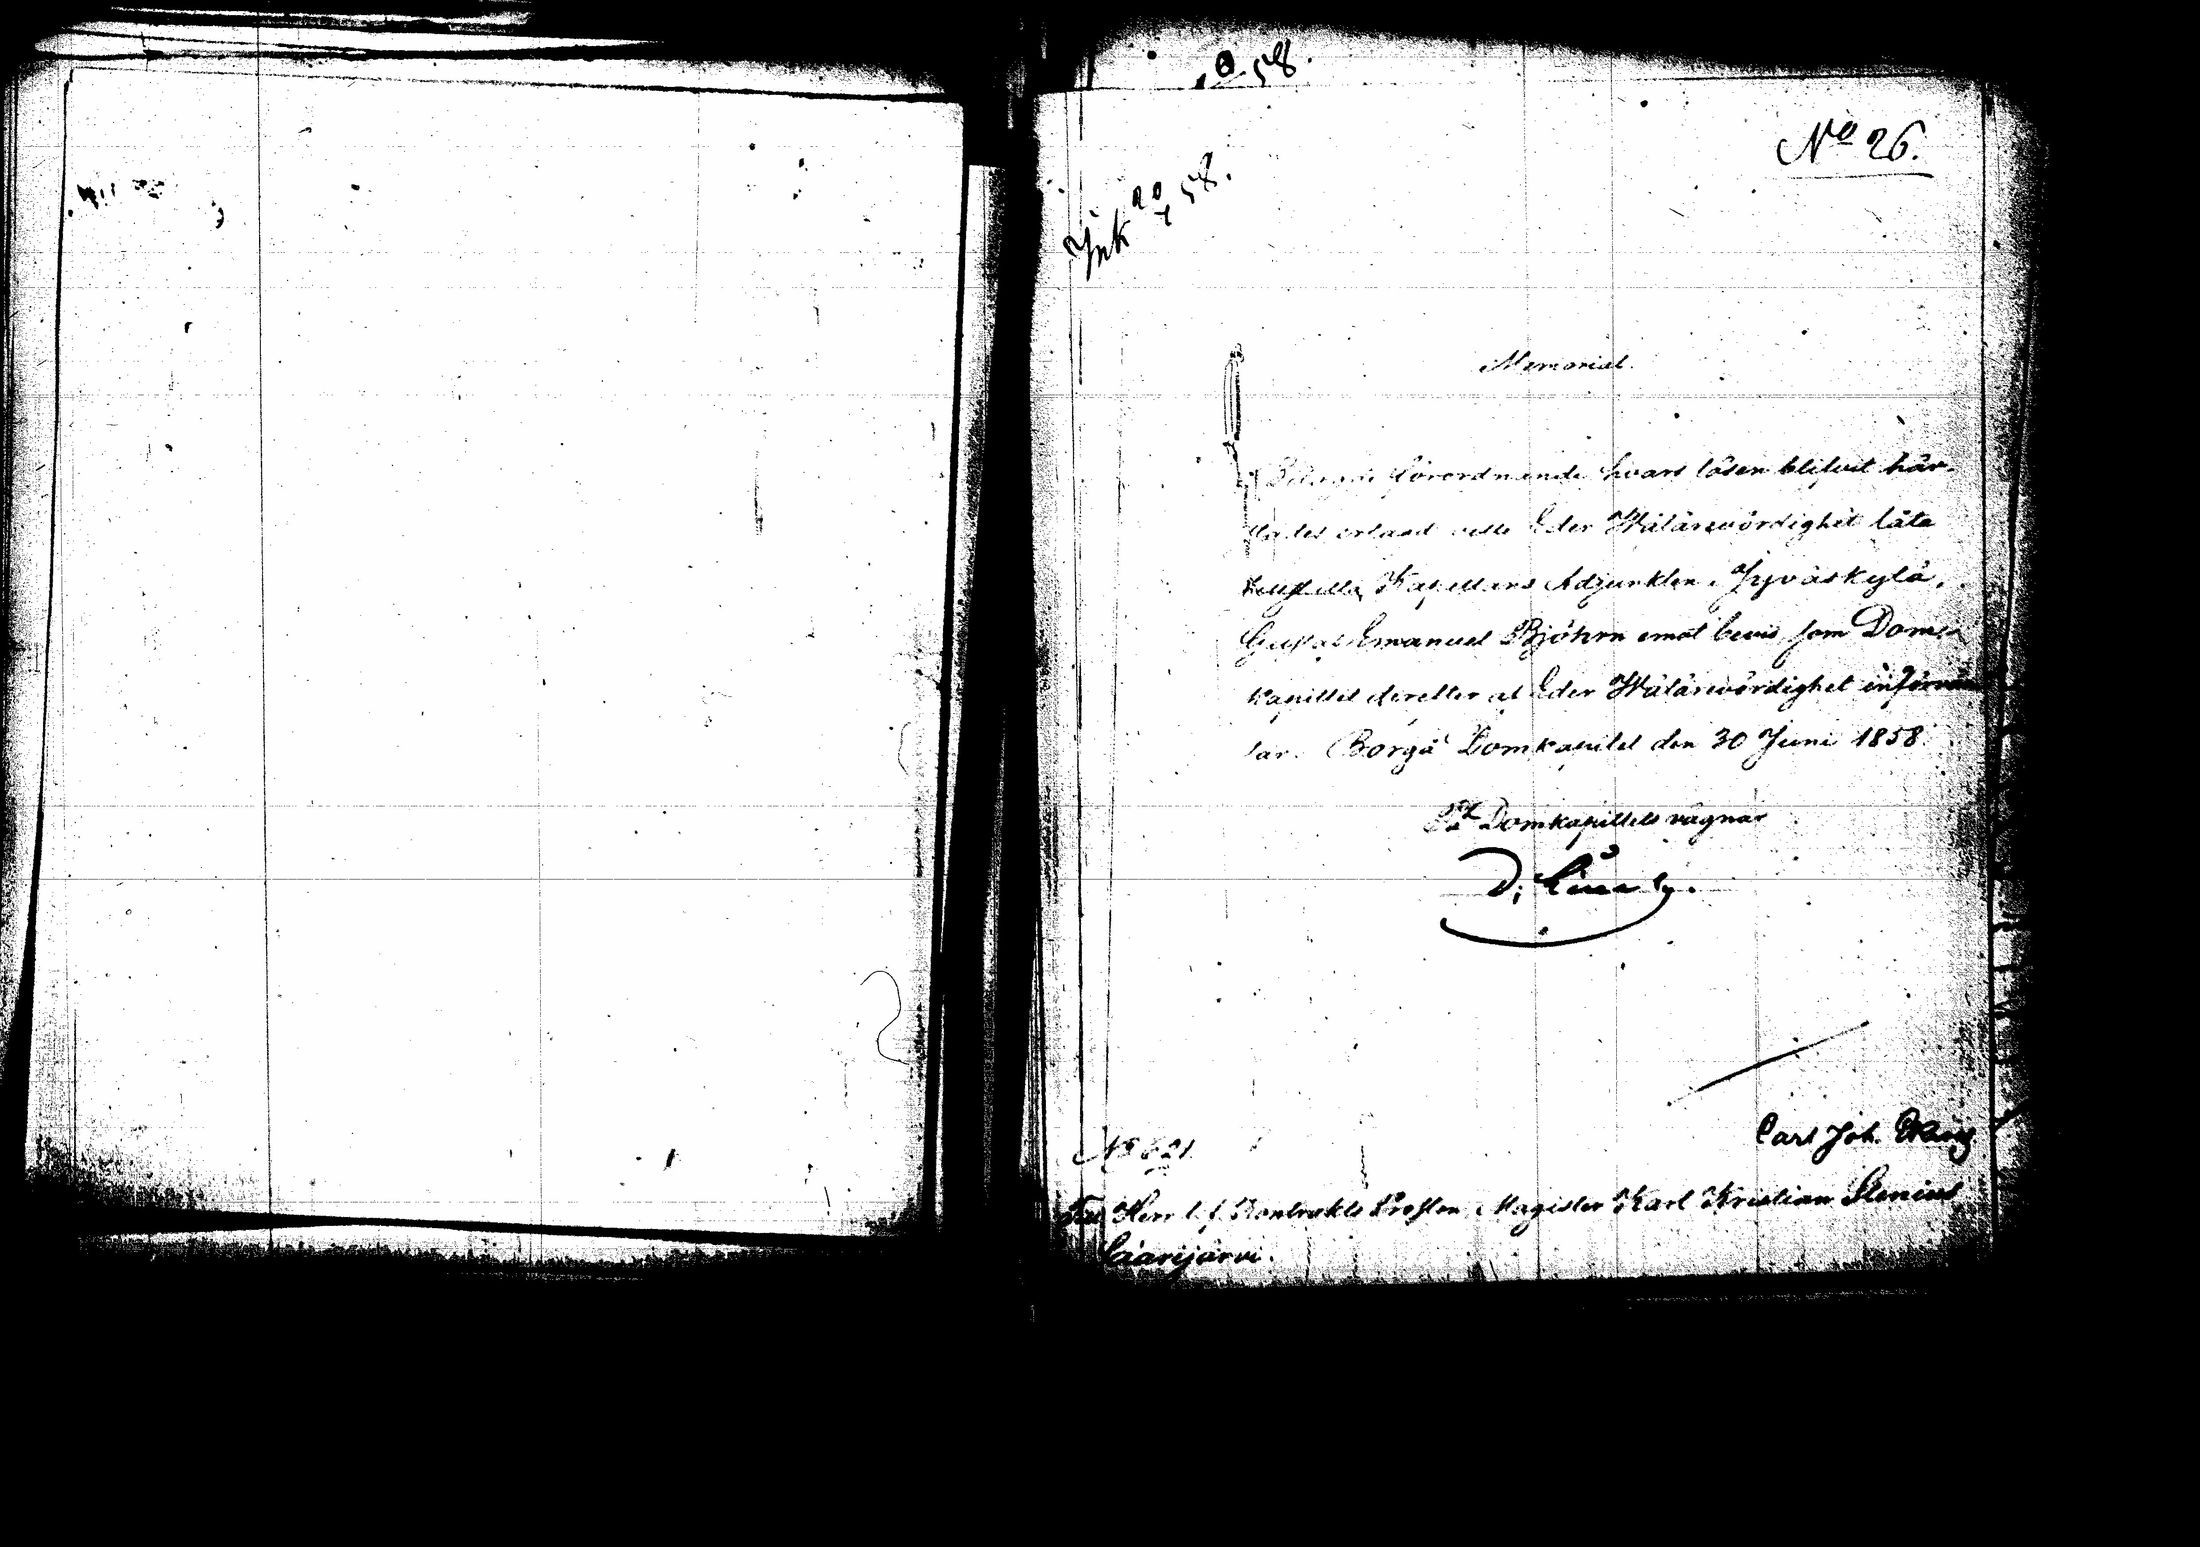 58.
No 26.
Ink 20/7 58.
Memorial.
förordnande hvars lösen blifvit här-
städes erlagd ville Eder Wälärevördighet låta
tillställa Kapellans Adjunkten i Jyväskylä,
Gustaf Emanuel Björkm emot bevis som Dom-
kapitlet derefter af Eder Wälärevördighet införvän-
tar. Borgå Domkapitel den 30 Juni 1858.
På Domkapitlets vägnar
Carl Joh.
No 621.
Till Herr t. f. Kontrakts Prosten, Magister Karl Kristian Stenius
Saarijärvi.